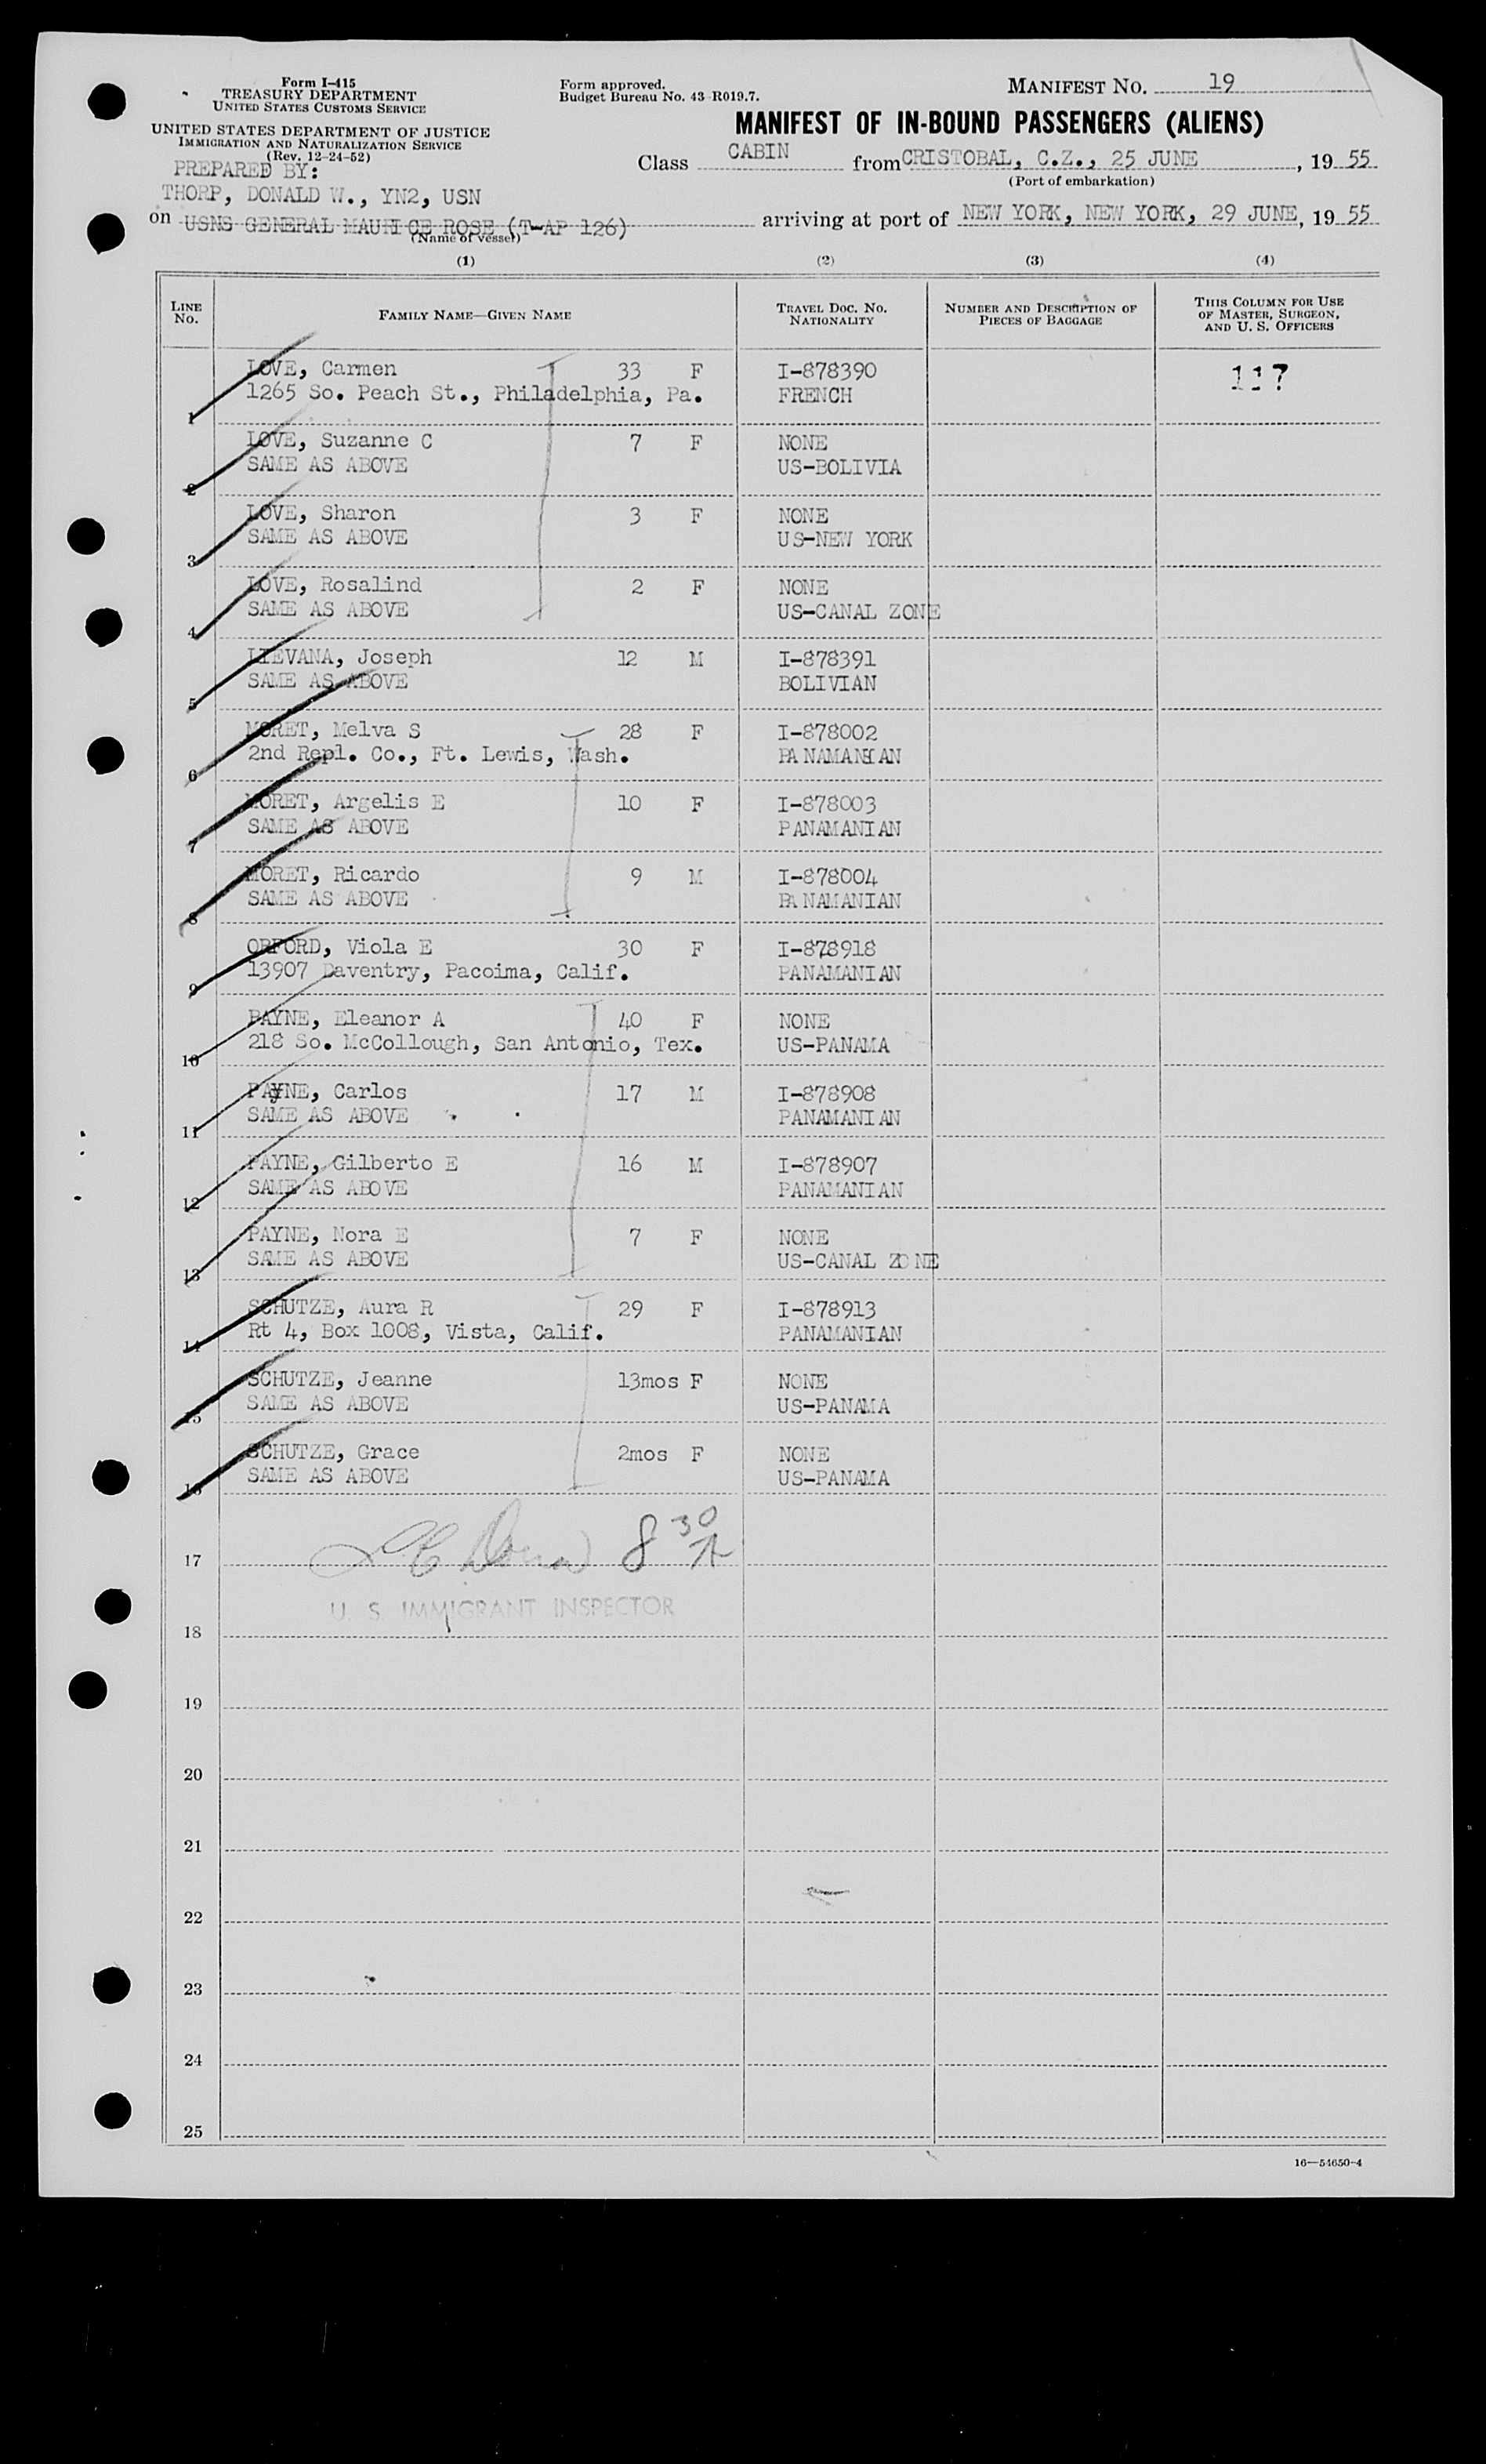 Form I-415
TREASURY DEPARTMENT
UNITED STATES CUSTOMS SERVICE
UNITED STATES DEPARTMENT OF JUSTICE
IMMIGRATION AND NATURALIZATION SERVICE
(Rev. 12-24-52)
PREPARED BY:
THORP, DONALD W., YN2, USN
Form approved.
Budget Bureau No. 43-R019.7.
MANIFEST NO. 19
MANIFEST OF IN-BOUND PASSENGERS (ALIENS)
Class CABIN from CRISTOBAL, C.Z., 25 JUNE, 19 55
(Port of embarkation)
on USNS GENERAL MAURICE ROSE (T-AP 126) arriving at port of NEW YORK, NEW YORK, 29 JUNE, 19 55
(Name of vessel)
(1) (2) (3) (4)
LINE NO. FAMILY NAME—GIVEN NAME TRAVEL DOC. NO. NATIONALITY NUMBER AND DESCRIPTION OF PIECES OF BAGGAGE THIS COLUMN FOR USE OF MASTER, SURGEON, AND U. S. OFFICERS
LOVE, Carmen 33 F I-878390 117
1 1265 So. Peach St., Philadelphia, Pa. FRENCH
LOVE, Suzanne C 7 F NONE
2 SAME AS ABOVE US-BOLIVIA
LOVE, Sharon 3 F NONE
3 SAME AS ABOVE US-NEW YORK
LOVE, Rosalind 2 F NONE
4 SAME AS ABOVE US-CANAL ZONE
LIEVANA, Joseph 12 M I-878391
5 SAME AS ABOVE BOLIVIAN
MORET, Melva S 28 F I-878002
6 2nd Repl. Co., Ft. Lewis, Wash. PANAMANIAN
MORET, Argelis E 10 F I-878003
7 SAME AS ABOVE PANAMANIAN
MORET, Ricardo 9 M I-878004
8 SAME AS ABOVE PANAMANIAN
ORFORD, Viola E 30 F I-878918
9 13907 Daventry, Pacoima, Calif. PANAMANIAN
PAYNE, Eleanor A 40 F NONE
10 218 So. McCollough, San Antonio, Tex. US-PANAMA
PAYNE, Carlos 17 M I-878908
11 SAME AS ABOVE PANAMANIAN
PAYNE, Gilberto E 16 M I-878907
12 SAME AS ABOVE PANAMANIAN
PAYNE, Nora E 7 F NONE
13 SAME AS ABOVE US-CANAL ZONE
SCHUTZE, Aura R 29 F I-878913
14 Rt 4, Box 1008, Vista, Calif. PANAMANIAN
SCHUTZE, Jeanne 13mos F NONE
15 SAME AS ABOVE US-PANAMA
SCHUTZE, Grace 2mos F NONE
16 SAME AS ABOVE US-PANAMA
17 8 30
U. S. IMMIGRANT INSPECTOR
18
19
20
21
22
23
24
25
16—54650-4